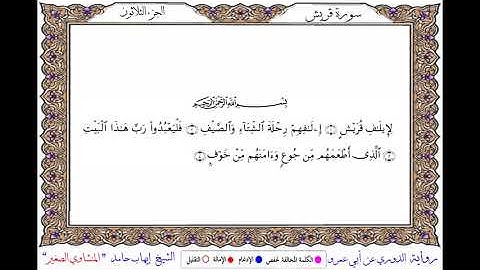 سورة قريش
الجزء الثلاثون
بِسْمِ اللَّهِ الرَّحْمَٰنِ الرَّحِيمِ
لِإِيلَٰفِ قُرَيْشٍ ۝ إِۦلَٰفِهِمْ رِحْلَةَ الشِّتَآءِ وَالصَّيْفِ ۝ فَلْيَعْبُدُوا۟ رَبَّ هَٰذَا الْبَيْتِ
۝ الَّذِى أَطْعَمَهُم مِّن جُوعٍ وَءَامَنَهُم مِّنْ خَوْفٍ ۝
رواية الدوري عن أبي عمرو
الكلمة المخالفة لحفص
الإدغام
الإمالة
التقليل
الشيخ إيهاب حامد "المنشاوي الصغير"